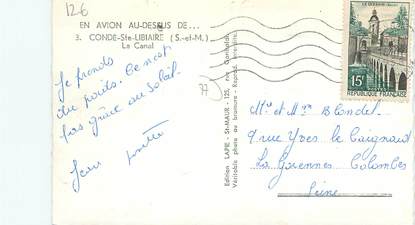 12€
EN AVION AU-DESSUS DE...
3. CONDE-Ste-LIBIAIRE (S.-et-M.)
Le Canal
Je prends
du poids. Ce n'est
pas grâce au Soleil.
77
Edition LAPIE - St-MAUR - 125, rue Garibaldi
Véritable photo au bromure - Reprod. interdite
LE QUESNOY
15F
REPUBLIQUE FRANÇAISE
Mr et Mme Blondel
9 rue Yves le Caignard
La Garennes Colombes
Seine